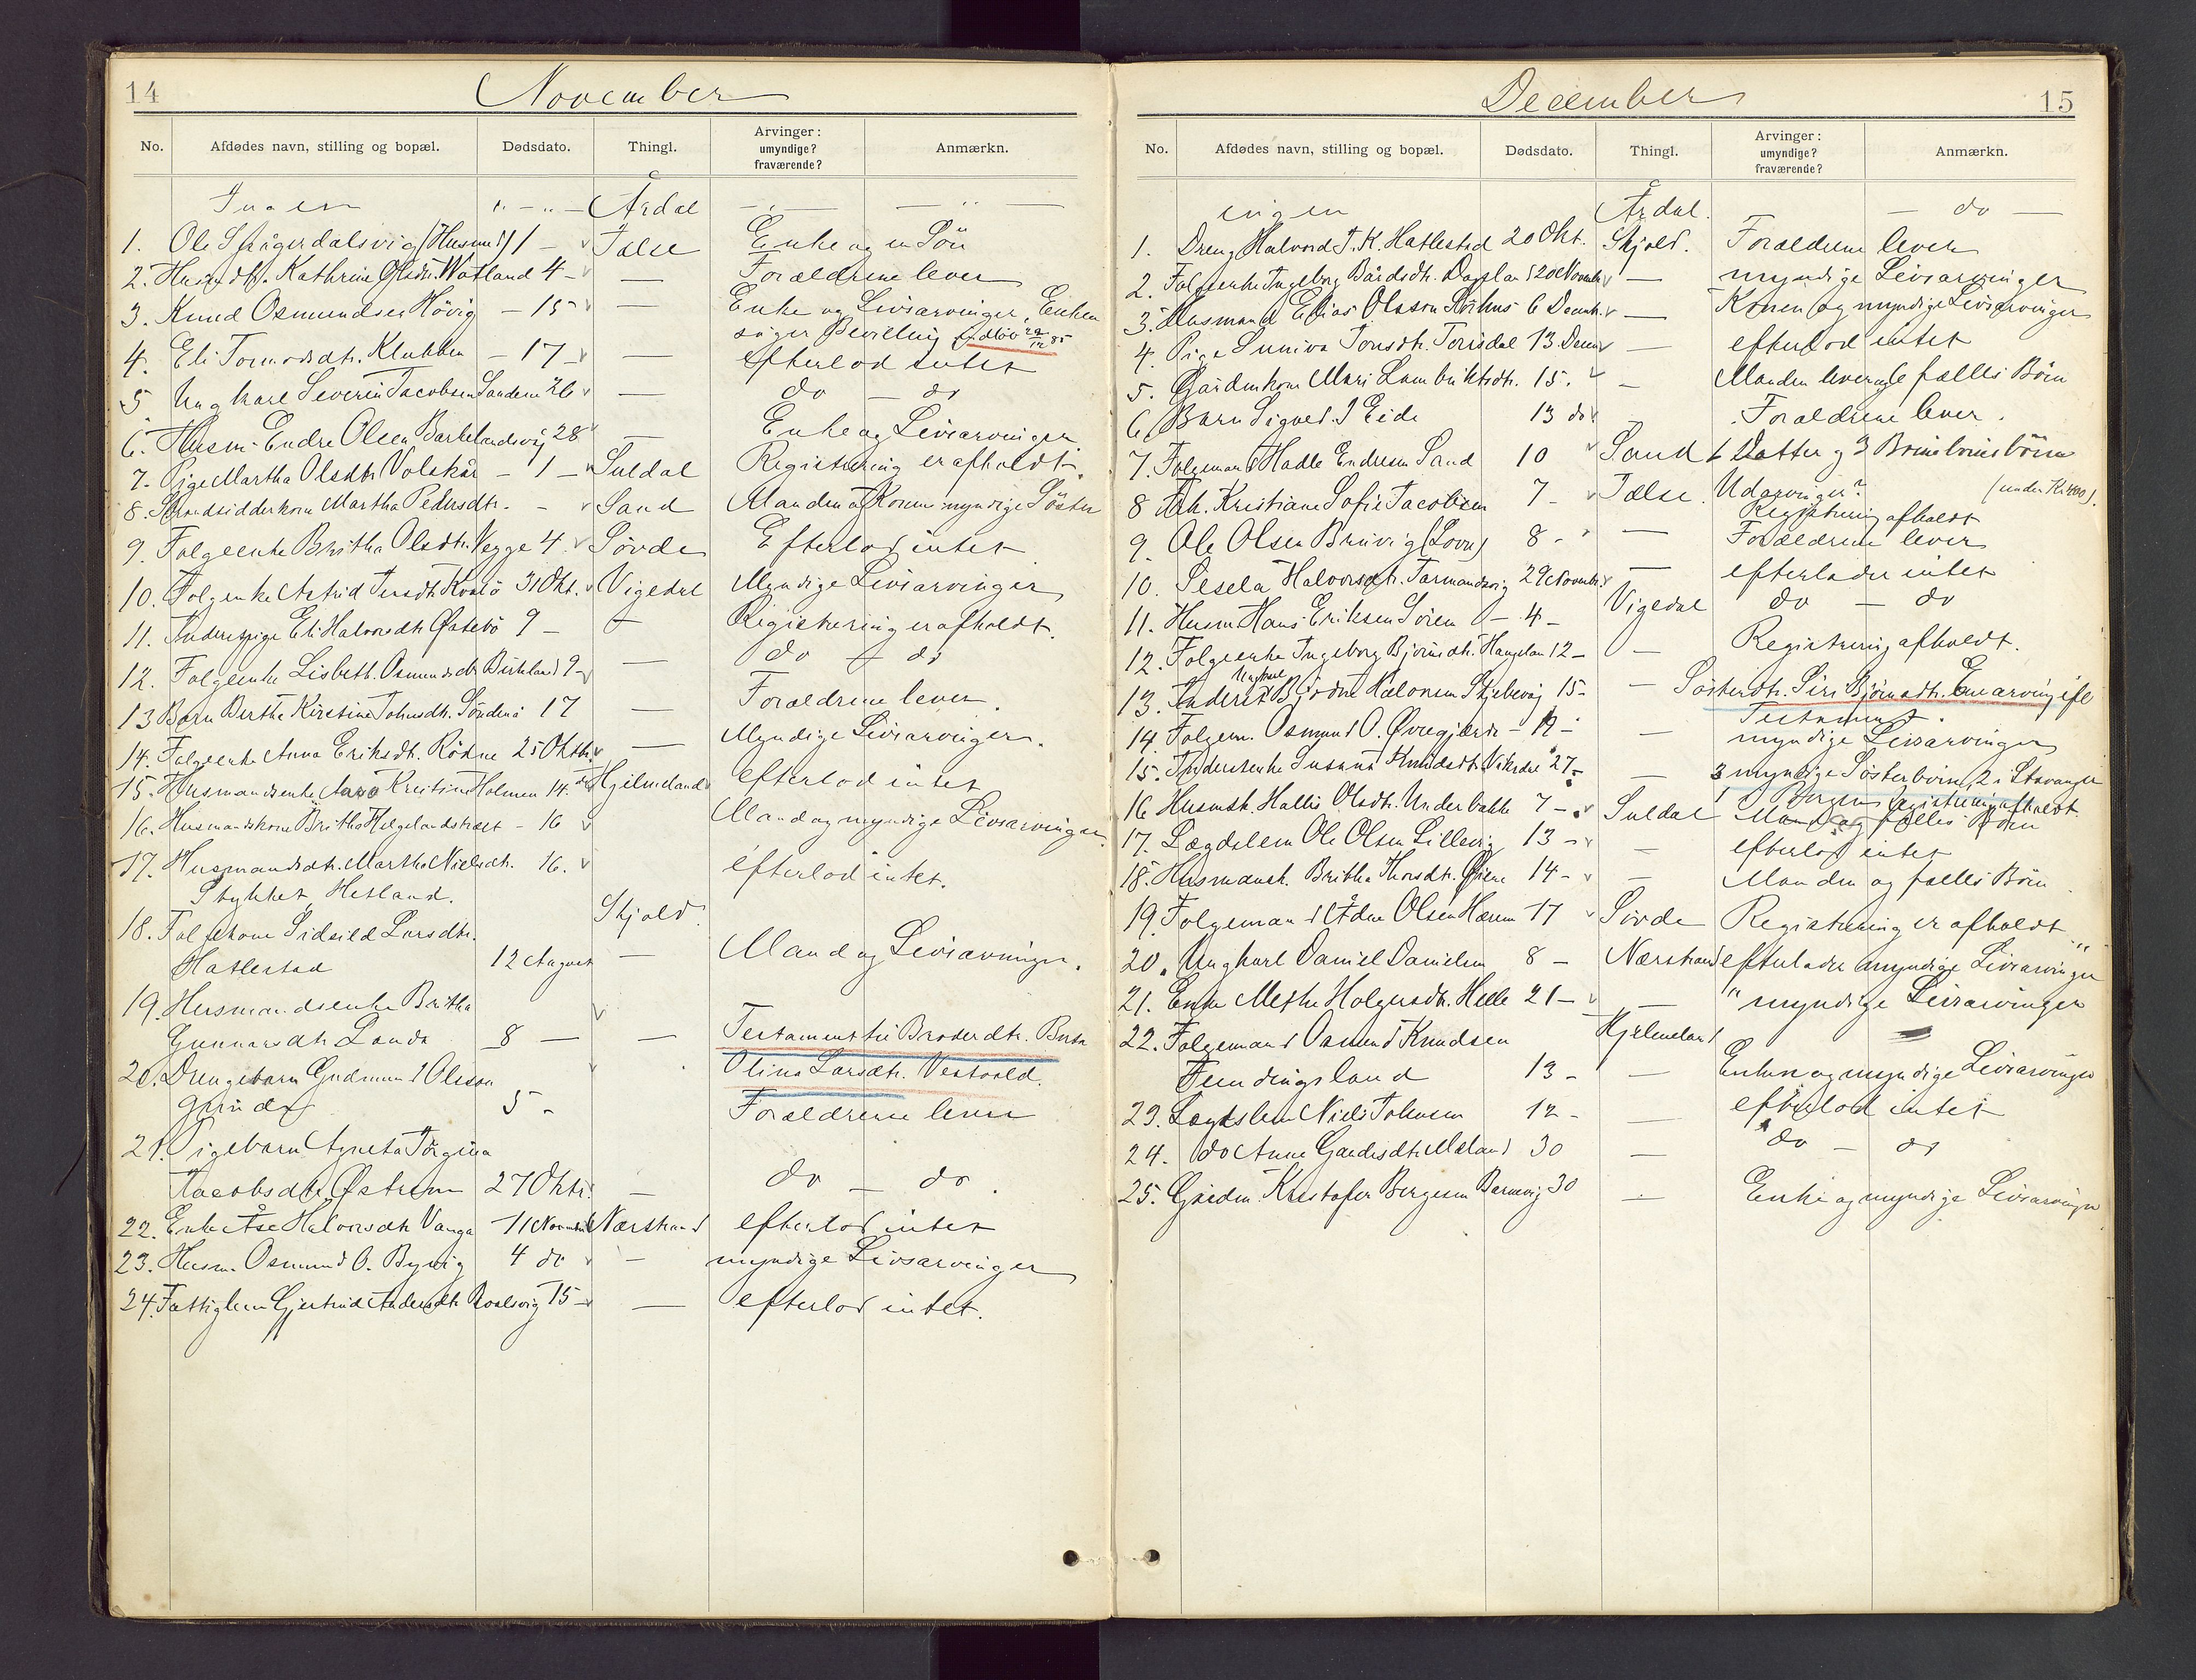 14
November
No. Afdødes navn, stilling og bopæl. Dødsdato. Thingl. Arvinger: umyndige? fraværende? Anmærkn.
Ingen " - " - Årdal
1. Ole (Husmd) 1 - Jælse Enke og en Søn
2. Kathrine Olsdtr. Watland 4 - — Forældrene lever
3. Knud Osmundsen Høvig - 15 — Enke og Livsarvinger, Enken
søger Bevilling
4. Eli Tormodsdtr. Klubben - 17 - — efterlod intet
5 Ungkarl Severin Jacobsen Sandem 26 — do — do
6. Husm. Endre Olsen 28 — Enke og Livsarvinger
7. Pige Martha Olsdtr. Volskår - 1 - Suldal Registrering er afholdt.
8. Strandsidderkone Martha Pedersdtr. - Sand Manden og Konens myndige Søster
9. Folgeenke Britha Olsdtr. Vegge 4. Søvde Efterlod intet
10. Folgenke Astrid 31 Okt. Vigedal Myndige Livsarvinger
11. Inderstpige Eli Halvorsdtr. Østebø 9 - — Registrering er afholdt.
12. Folgeenke Lisbeth Osmundsdtr. Birkeland 9 - — do — do
13 Barn Berthe Kirstine Johnsdtr. Søndenå 17 — Forældrene lever.
14. Folgeenke Anna Eriksdtr. Rødne 25 Oktbr. — Myndige Livsarvinger.
15. Husmandsenke Kristine Holmen 14. Hjelmeland efterlod intet
16. Husmandskone Britha Helgelandstræet - 16 Mand og myndige Livsarvinger
17. Husmandsdtr. Martha Nielsdtr. 16. efterlod intet.
Stykket Hetland.
Skjold
18. Folgekone Sidsild Larsdtr.
Hatlestad 12 August — Mand og Livsarvinger.
19. Husmandsenke Britha
Gunnarsdtr. Landa 8 — — Testament til Broderdtr. Berta
Olina Larsdtr. Vestvold.
20. Drengebarn Gudmund Olsson
Grinde 5 - Forældrene lever
21. Pigebarn Agneta Torgina
Jacobsdtr. Østrem 27 Oktr. — do — do.
22. Enke Åse Halvorsdtr. Vanga 11 November Nærstrand efterlod intet
23. Husm. Osmund O. Byvig 4 do — myndige Livsarvinger
24. Fattiglem Gjertrud Andersdtr. 15 - — efterlod intet.
December
15
No. Afdødes navn, stilling og bopæl. Dødsdato. Thingl. Arvinger: umyndige? fraværende? Anmærkn.
ingen Årdal. — do —
1. Dreng Halvord T. K. Hatlestad 20 Okt. Skjold. Forældrene lever
2. Folgeenke Ingeborg Bårdsdtr. Dagsland 20 Novembr — myndige Livsarvinger
3. Husmand Elias Olsson 6 Decemb. — Konen og myndige Livsarvinger
4. Pige Sunniva Tonsdtr. 13. Decm — efterlod intet
5. Gårdmkone Mari Lambriktsdtr. 15. - Manden lever og 6 fælles Børn
6. Barn Sigved. I Eide 13 do. - Forældrene lever.
7. Folgemand Hadle Endresen Sand 10 Sand 1 Datter og 3 Børnsbørnsbørn
8 Kristiane Sofie Jacobsen 7 - Jælse. Udarvinger? (under Kr 400).
Registrering afholdt
9. Ole Olsen Bruvig (Lovra) 8 - — Forældrene lever
10. Sesela Halvorsdtr. Tarmandsvig 29 Novembr — efterlader intet
11. Husm Hans Eriksen Søren - 4 - Vigedal do — do
12. Folgeenke Ingeborg Bjørnsdtr. 12 - — Registrering afholdt.
Ungkarl
13. Inderst Bjødne 15 - — Søsterdtr. Siri Bjørnsdtr. Enearving ifl
Testament.
14. Folgem. Osmund O. Øvregjærde - 12 - — myndige Livsarvinger
15. Inderstenke Susana Knudsdtr. Vikedal 27 - — 3 myndige Søsterbørn, 2 i Stavanger
1 Bergen registrering afholdt.
16. Husmsk. Hallis Olsdtr. Underbakke 7 - Suldal Mand og fælles Børn
17. Lægdslem Ole Olsen Lillevig 13 - — efterlod intet
18. Husmandsk. Britha Thorsdtr. Øiene 14 - — Manden og fælles Børn
19. Folgemand Ådne Olsen Hæren 17 Søvde Registrering er afholdt
20. Ungkarl Daniel Danielsen 8 - Nærstrand efterlader umyndige Livsarvinger
21. Enke Methe Holgersdtr. Helle 21 - — " myndige Livsarvinger
22. Folgemand Osmund Knudsen Hjelmeland
Fundingsland 13 - — Enken og myndige Livsarvinger
23. Lægdslem Niels Johnsen 12 - — efterlod intet
24. do Anne Gardsdtr. Mæland 30 — do — do
25. Gårdm. Kristofer Børgesen Barkevig 30 — Enke og myndige Livsarvinger